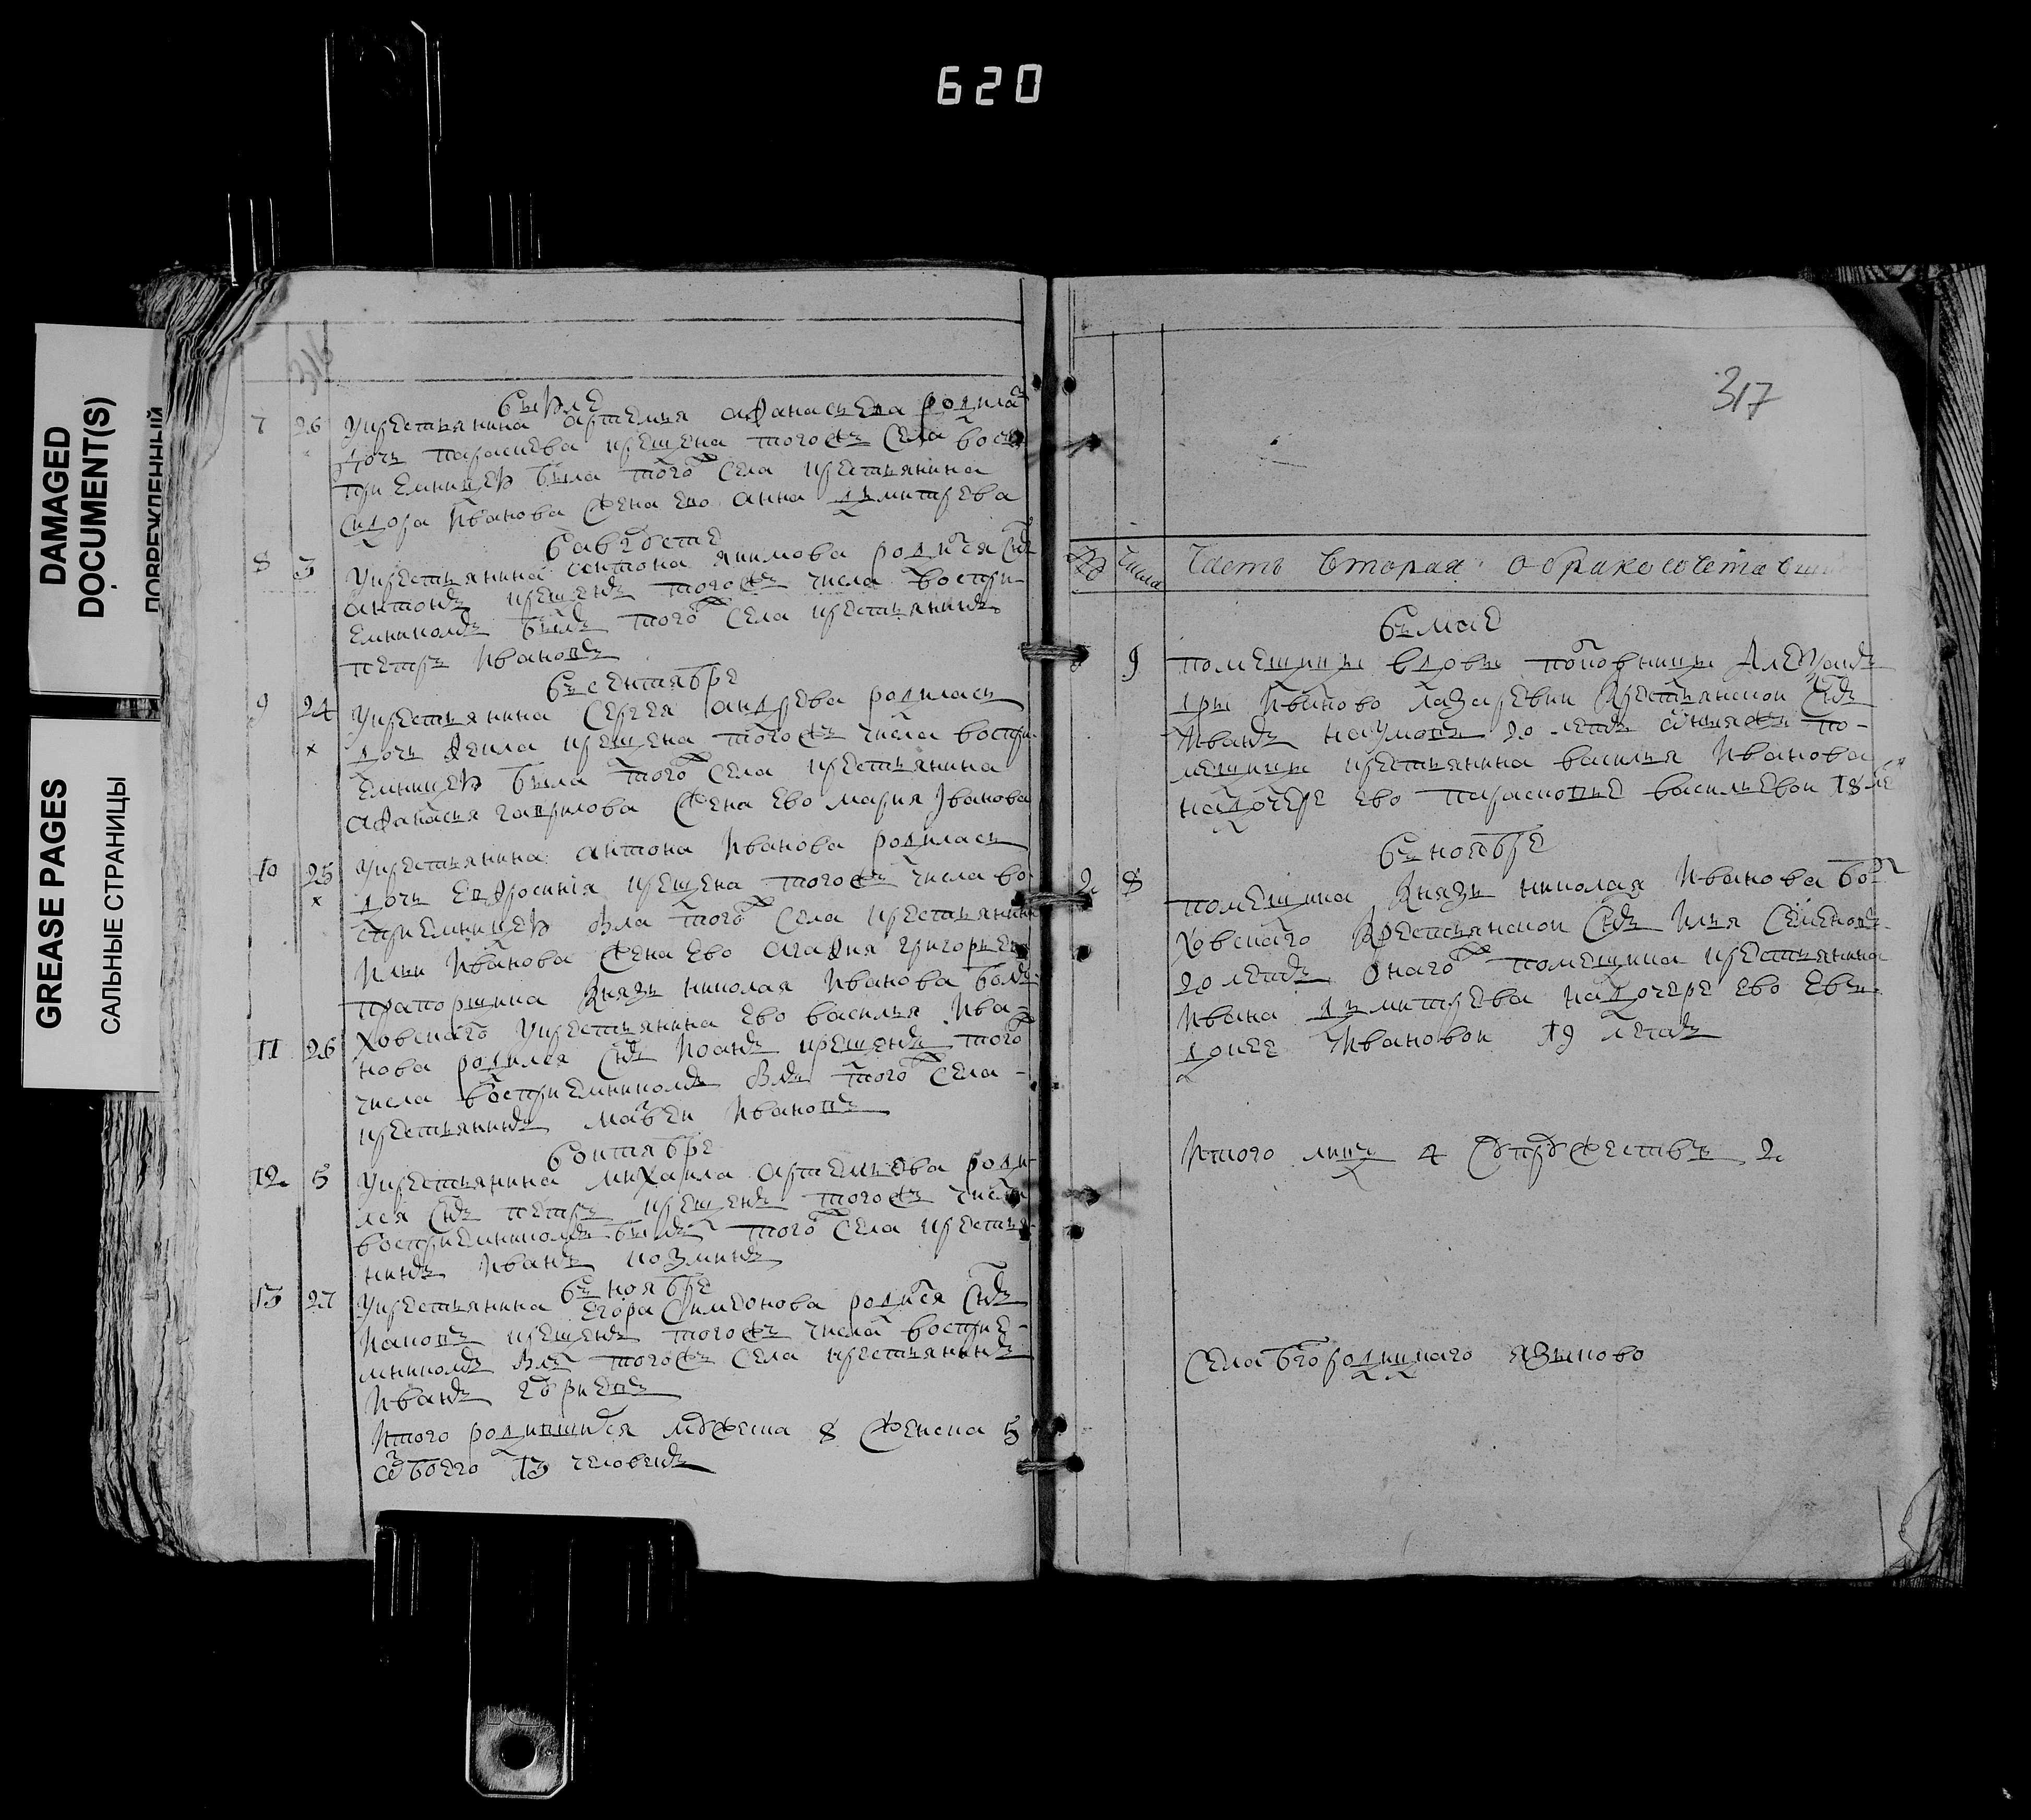 620
DAMAGED
DOCUMENT(S)
ПОВРЕЖДЕННЫЙ
GREASE PAGES
САЛЬНЫЕ СТРАНИЦЫ
316
въ Июле
7 26 У крестьянина Артемья Афанасьева родилась
дочь Парасцева крещена того ж села
приемницею была того ж села крестьянина
Сидора Иванова жена ево Анна Дьмитрева
в августе
8 3 У крестьянина Антона Якимова родился сынъ
Антонъ крещенъ того ж числа воспри-
емникомъ былъ того ж села крестьянинъ
Петръ Ивановъ
въ сентябре
9 24 У крестьянина Сергея Андрева родилась
х дочь Фекла крещена того ж числа воспри-
емницею была того ж села крестьянина
Афанасья Гаврилова жена ево Мария Иванова
10 25 У крестьянина Антона Иванова родилась
х дочь Евфросиния крещена того ж числа во-
сприемницею была того ж села крестьянина
Ильи Иванова жена ево Агафия Григорьева
прапорщика князь Николая Иванова Болъ-
ховскаго у крестьянина ево Василья Ива-
11 26 нова родился сынъ Иоанъ крещенъ того ж
числа восприемникомъ былъ того ж села
крестьянинъ Матвеи Ивановъ
в октябре
12 5 У крестьянина Михаила Артемьева роди-
лся сынъ Петръ крещенъ того ж числа
восприемникомъ былъ того ж села крестья-
нинъ Иванъ Козминъ
въ ноябре
13 27 У крестьянина Егора Симеонова родился сынъ
Иаковъ крещенъ того ж числа восприе-
мникомъ былъ того ж села крестьянинъ
Иванъ
Итого родившихся мужеска 8 женска 5
обоего 13 человекъ
317
№ числа Часть вторая о бракосочетавши
въ мае
9 помещицы вдовы Алексанъ-
дры Ивановой Лазаревои крестьянскои сынъ
Иванъ Наумовъ 20 летъ по-
мещицы крестьянина Василья Иванова
на дочере ево Парасковье Васильевои 18 ле
въ ноябре
2 8 помещика князь Николая Иванова Бол-
ховскаго крестьянскои сынъ Илья Семеновъ
20 летъ онаго ж помещика крестьянина
Ивана Дьмитрева на дочере ево Евъ-
докее Ивановои 19 летъ
Итого лицъ 4 супружествъ 2
села Богородицкаго Языково